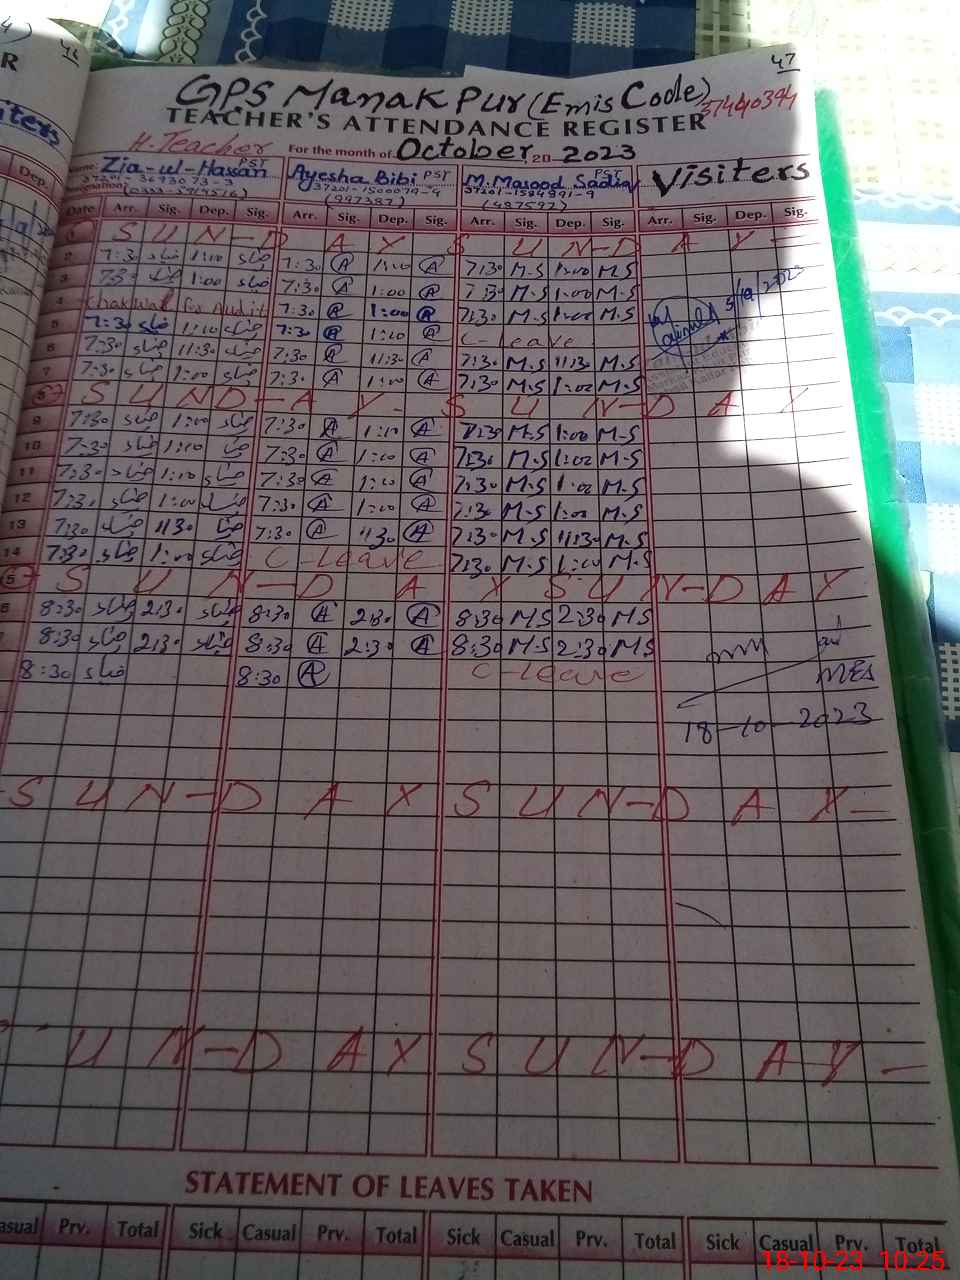 47
46
GPS Manakpur (Emis Code) 37440394
TEACHER'S ATTENDANCE REGISTER
H.Teacher For the month of October 20 - 2023
Zia-ul-Hassan PST Ayesha Bibi PST M. Masood Sadiq PST Visiters
37201-1500079-9
(997387) (487597)
Dep. Date Arr. Sig. Dep. Sig. Arr. Sig. Dep. Sig. Arr. Sig. Dep. Sig. Arr. Sig. Dep. Sig.
1 S U N-D A Y S U N-D A Y -
2 7:30 ضیاء 1:00 ضیاء 7:30 A 1:00 A 7:30 M.S 1:00 M.S
3 7:30 ضیاء 1:00 ضیاء 7:30 A 1:00 A 7:30 M.S 1:00 M.S
4 Chakwal for Audit 7:30 A 1:00 A 7:30 M.S 1:00 M.S
5 7:30 ضیاء 1:00 ضیاء 7:30 A 1:00 A C-leave
6 7:30 ضیاء 11:30 ضیاء 7:30 A 11:30 A 7:30 M.S 11:30 M.S
7 7:30 ضیاء 1:00 ضیاء 7:30 A 1:00 A 7:30 M.S 1:00 M.S
8 S U N D - A Y - S U N-D A Y
9 7:30 ضیاء 1:00 ضیاء 7:30 A 1:00 A 7:30 M.S 1:00 M.S
10 7:30 ضیاء 1:00 ضیاء 7:30 A 1:00 A 7:30 M.S 1:00 M.S
11 7:30 ضیاء 1:00 ضیاء 7:30 A 1:00 A 7:30 M.S 1:00 M.S
12 7:30 ضیاء 1:00 ضیاء 7:30 A 1:00 A 7:30 M.S 1:00 M.S
13 7:30 ضیاء 11:30 ضیاء 7:30 A 11:30 A 7:30 M.S 11:30 M.S
14 7:30 ضیاء 1:00 ضیاء C-leave 7:30 M.S 1:00 M.S
5 - S U N-D A Y S U N-D A Y
6 8:30 ضیاء 2:30 ضیاء 8:30 A 2:30 A 8:30 M.S 2:30 M.S
7 8:30 ضیاء 2:30 ضیاء 8:30 A 2:30 A 8:30 M.S 2:30 M.S
8:30 ضیاء 8:30 A C-leave
18-10-2023
S U N-D A Y S U N-D A Y -
U N-D A Y S U N-D A Y -
STATEMENT OF LEAVES TAKEN
asual Prv. Total Sick Casual Prv. Total Sick Casual Prv. Total Sick Casual Prv. Total
18-10-23 10:25